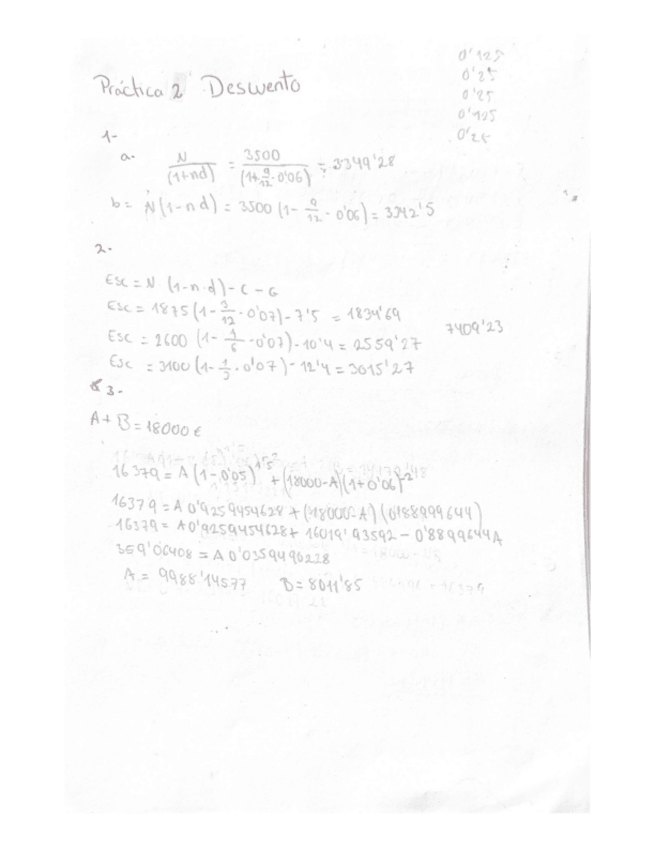 0'125
0'25
0'25
0'125
0'25
Práctica 2 Descuento
1-
a. N/(1+nd) = 3500/(1+9/12·0'06) = 3349'28
b = N(1-nd) = 3500(1- 9/12 · 0'06) = 3342'5
2-
Esc = N·(1-n·d)-C-G
Esc = 1875(1- 3/12 · 0'07)-7'5 = 1834'69
Esc = 2600 (1- 1/6 · 0'07)-10'4 = 2559'27
7409'23
Esc = 3100(1- 1/3 · 0'07)-12'4 = 3015'27
3-
A+B=18000€
16379 = A(1-0'05)^1'5 + (18000-A)(1+0'06)^-2
16379 = A 0'9259454628 + (18000-A)(0'88999644)
16379 = A 0'9259454628 + 16019'93592 - 0'8899644A
359'06408 = A 0'0359490228
A = 9988'14577 B = 8011'85